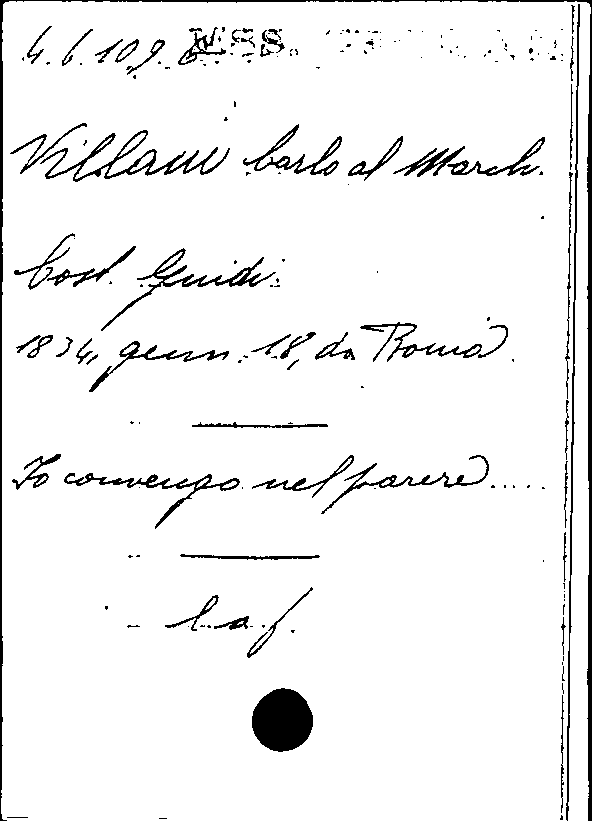 4.6.10,9 MSS.
Villani Carlo al March.
Cost. Guidi.
1834, genn. 18, da Roma.
Io convengo nel parere.....
l. a. f.